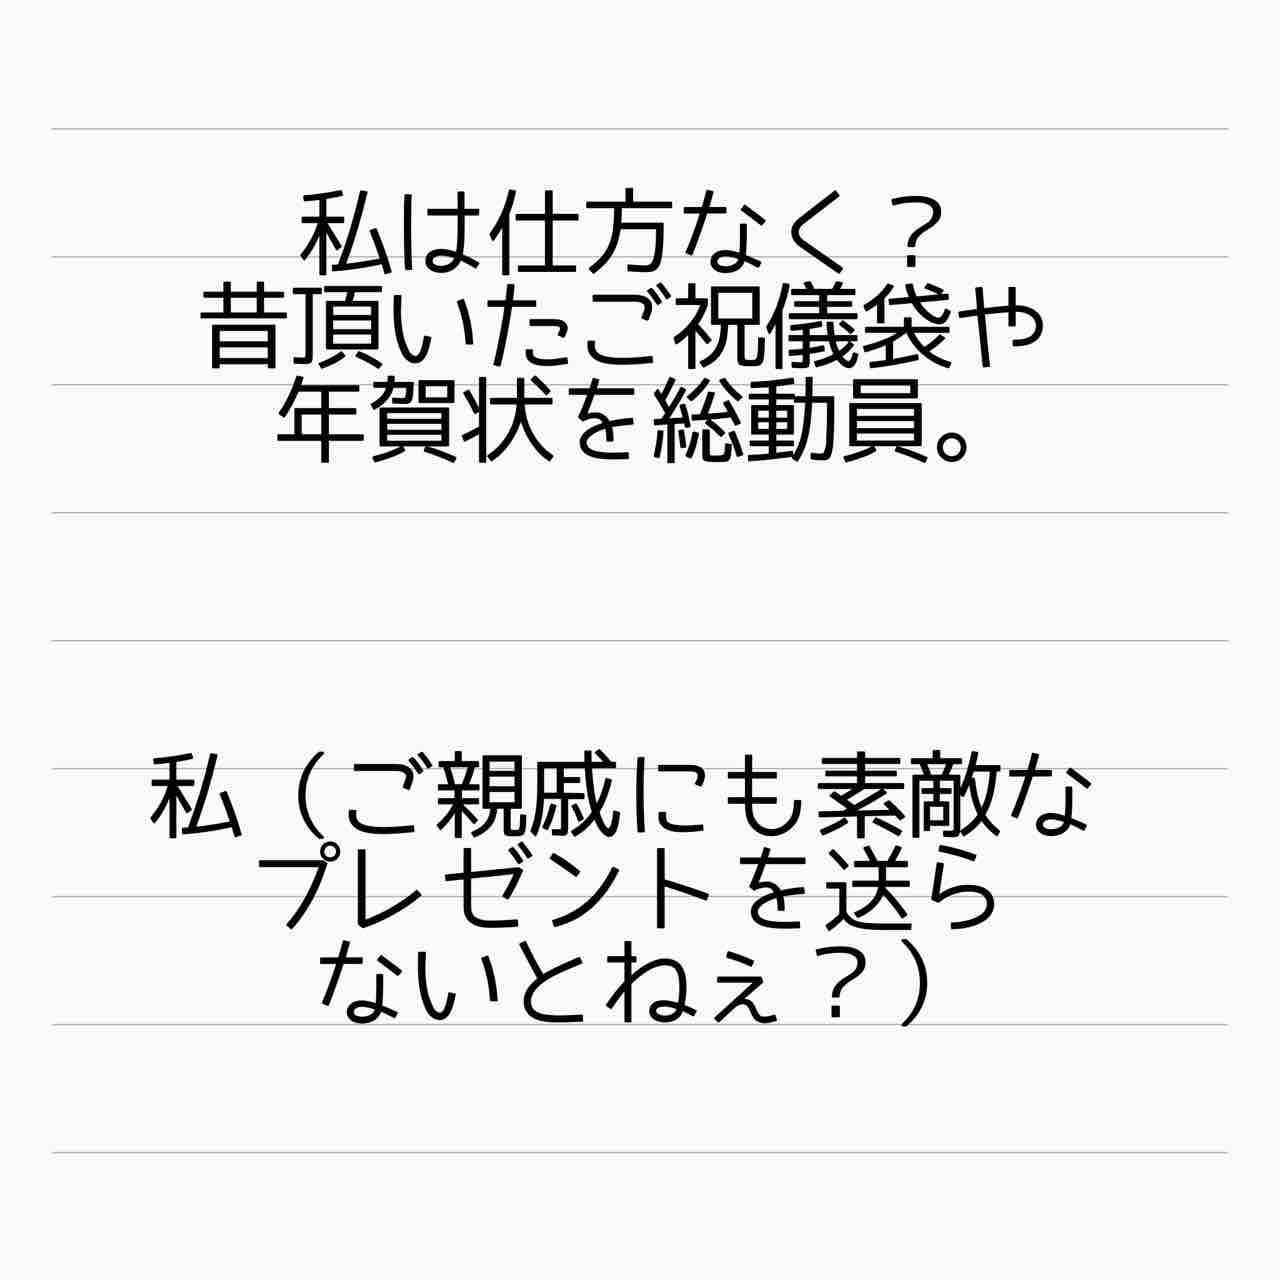 私は仕方なく？
昔頂いたご祝儀袋や
年賀状を総動員。
私（ご親戚にも素敵な
プレゼントを送ら
ないとねぇ？）